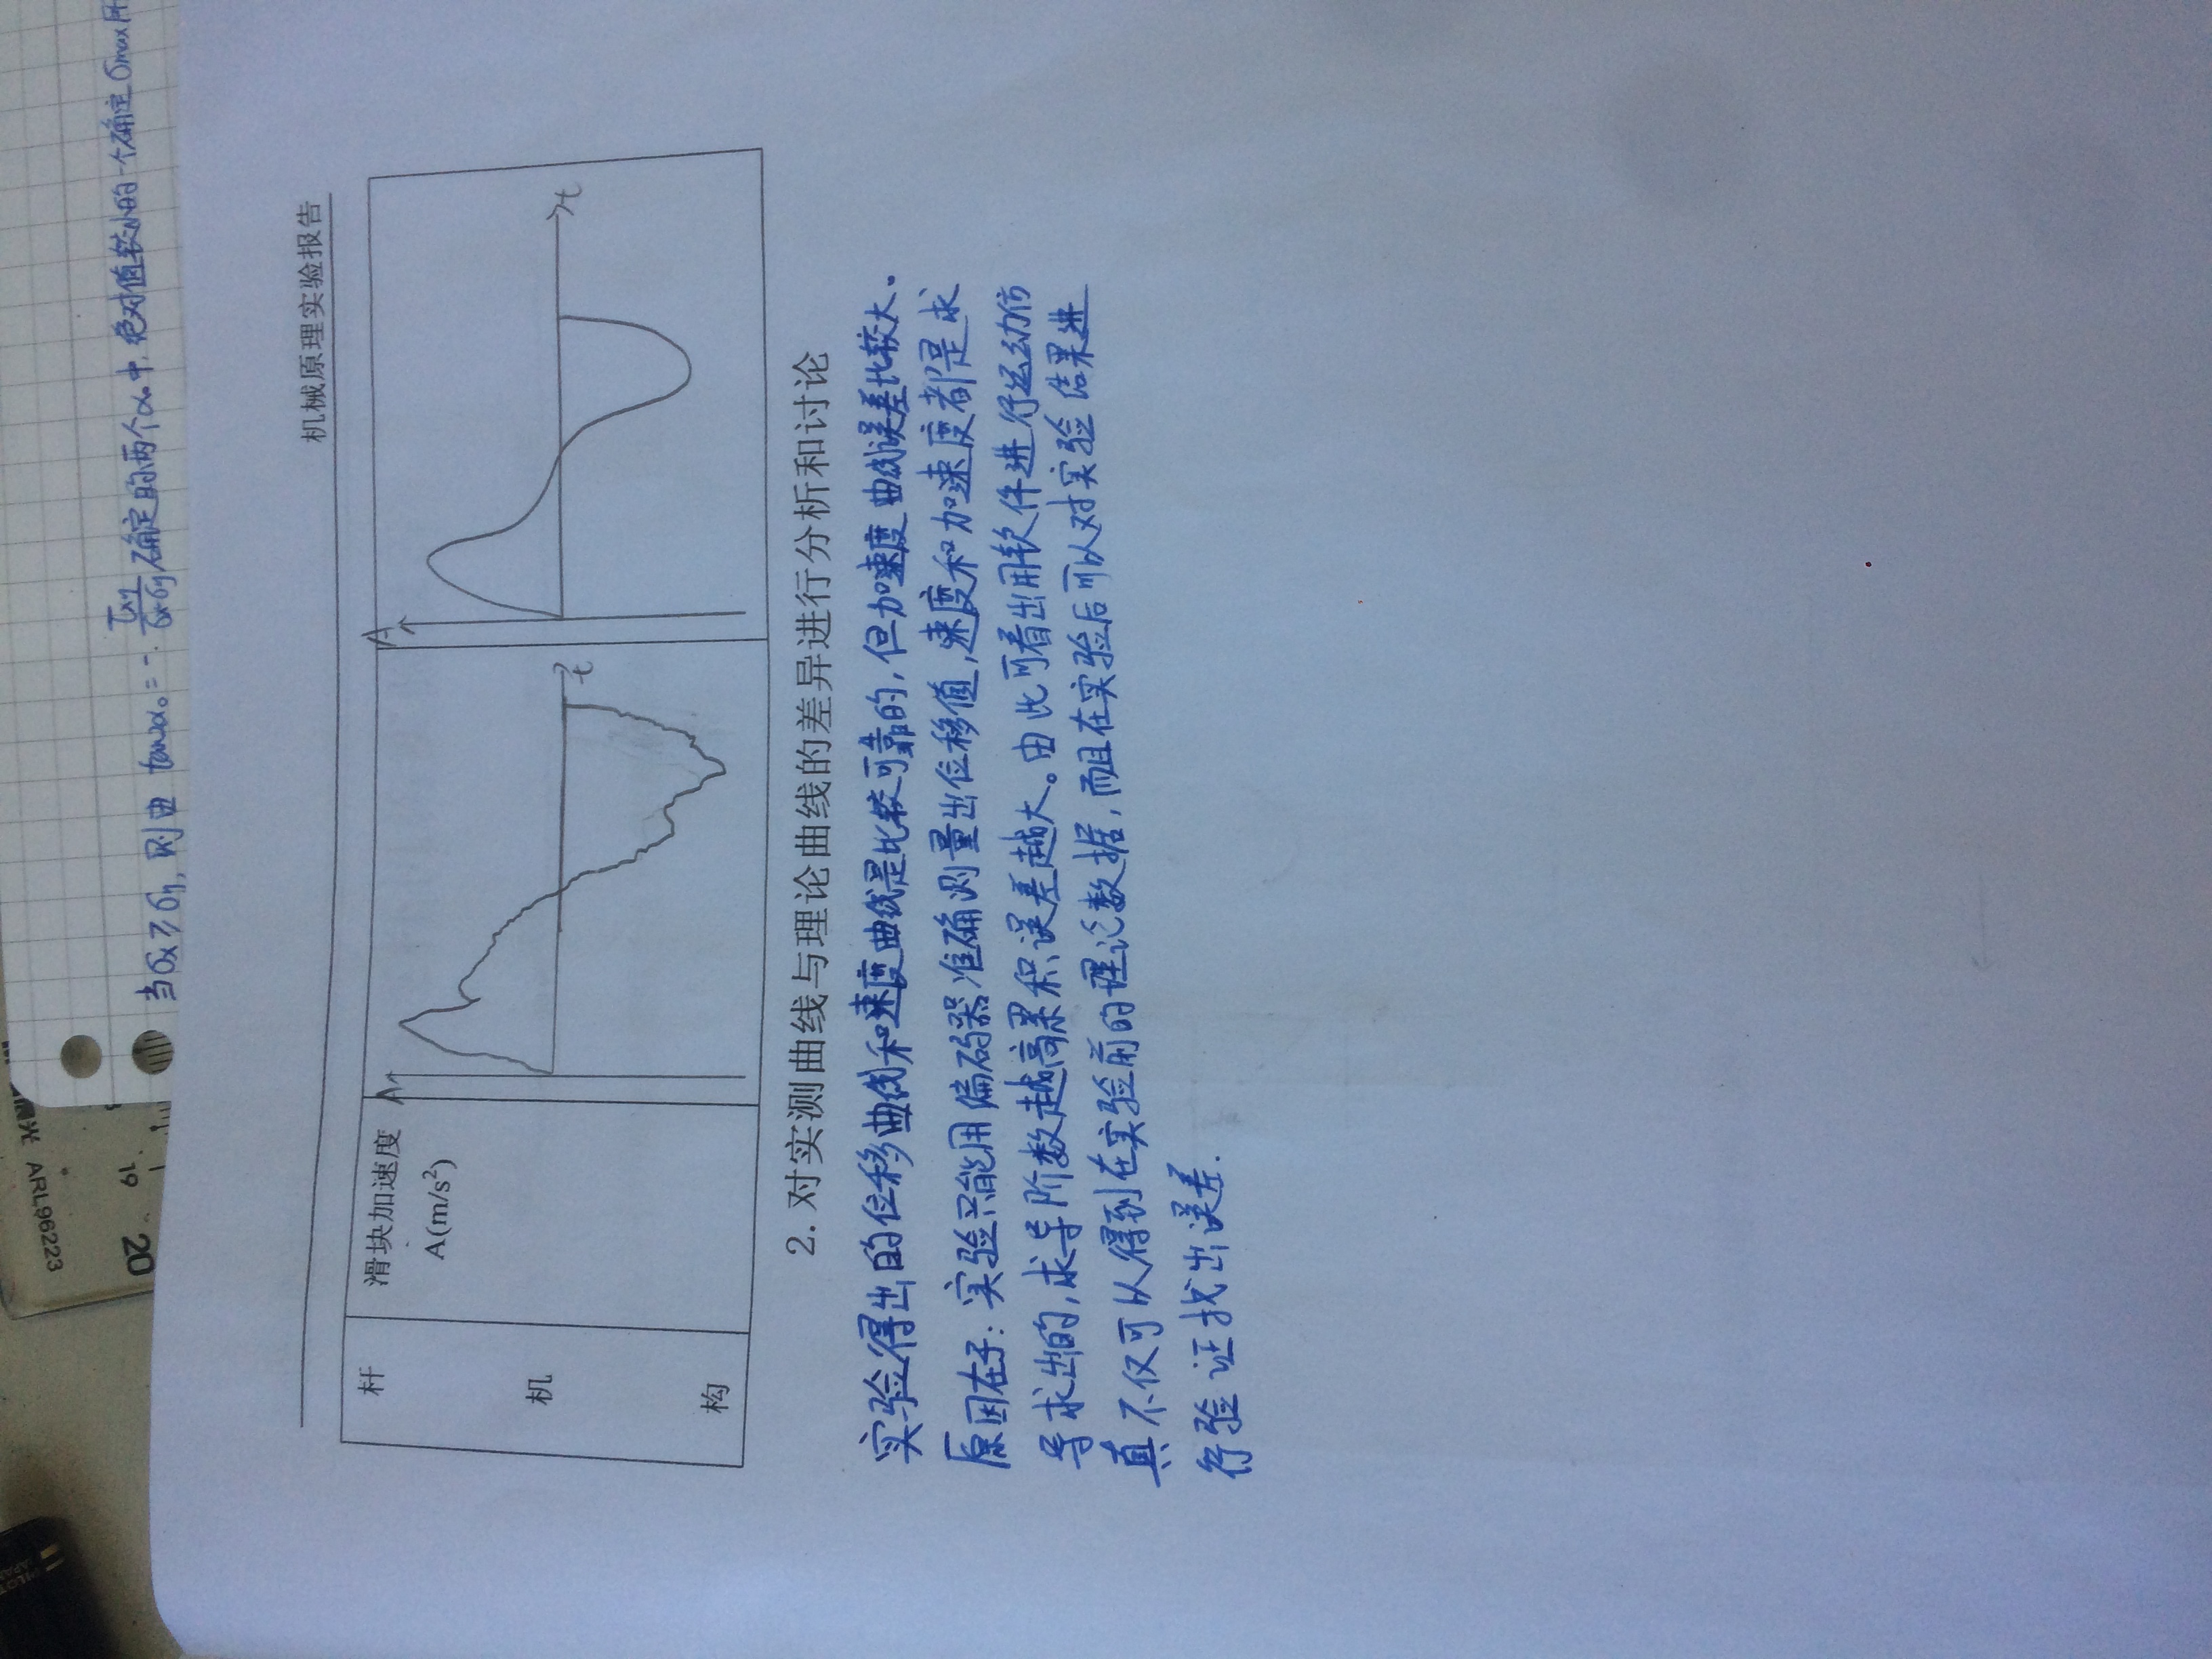 ARL96223
20
19
当σx≥σy,则由 tan2α₀=-τxy/σx-σy确定的两个α₀中,绝对值较小的一个确定σmax所
机械原理实验报告
杆
机
构
滑块加速度
A(m/s²)
A
t
A
t
2. 对实测曲线与理论曲线的差异进行分析和讨论
实验得出的位移曲线和速度曲线是比较可靠的,但加速度曲线误差比较大。
原因在于:实验只能用编码器准确测量出位移值,速度和加速度都是求
导求出的,求导阶数越高累积误差越大。由此可看出用软件进行运动仿
真不仅可以得到在实验前的理论数据,而且在实验后可以对实验结果进
行验证找出误差.